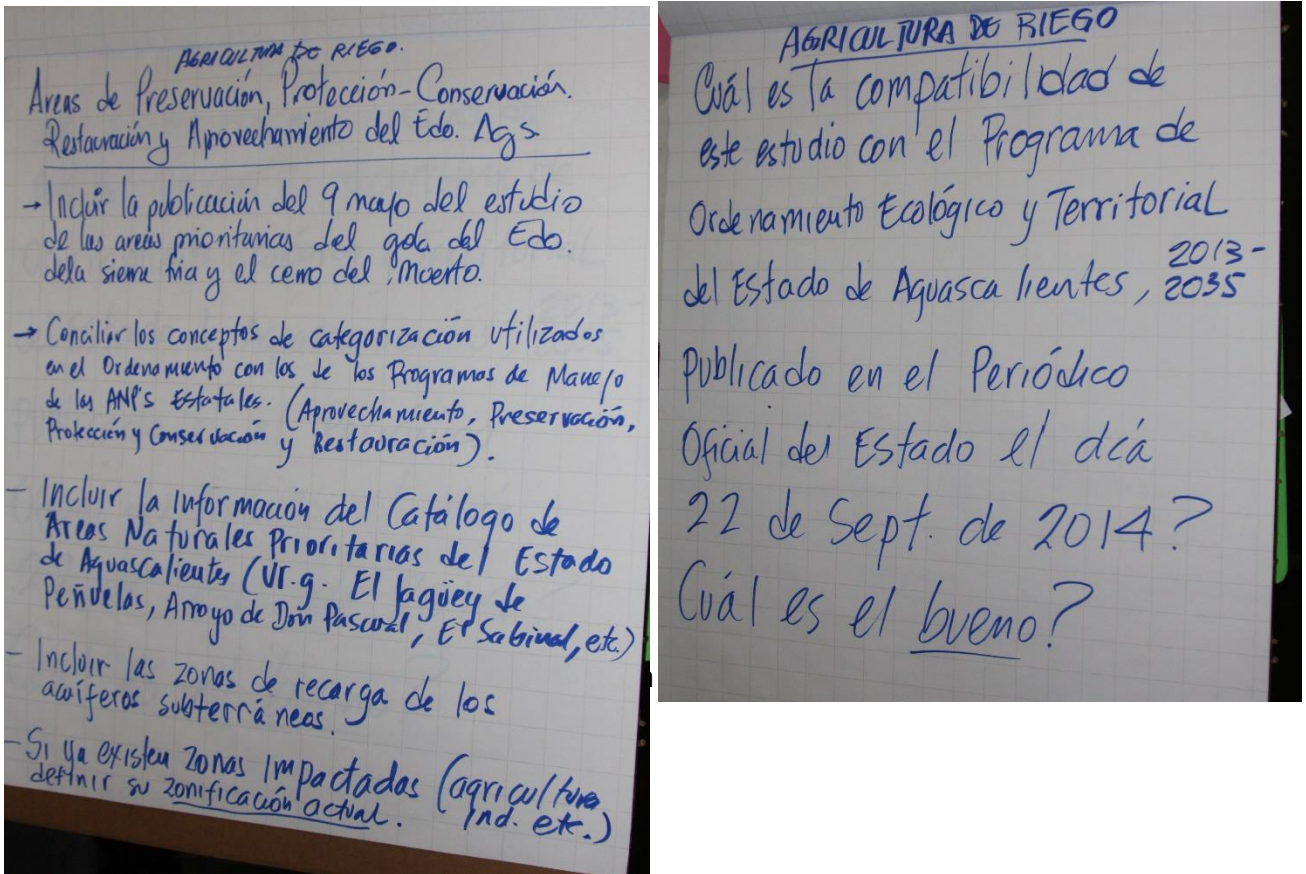 AGRICULTURA DE RIEGO.
Areas de Preservación, Protección-Conservación.
Restauración y Aprovechamiento del Edo. Ags.
→ Incluir la publicación del 9 mayo del estudio
de las areas prioritarias del gob. del Edo.
dela sierra fria y el cerro del Muerto.
→ Conciliar los conceptos de categorización utilizados
en el Ordenamiento con los de los Programas de Manejo
de las ANP's Estatales. (Aprovechamiento, Preservación,
Protección y Conservación y Restauración).
- Incluir la información del Catálogo de
Areas Naturales Prioritarias del Estado
de Aguascalientes (vr.g. El Jagüey de
Peñuelas, Arroyo de Don Pascual, El Sabinal, etc.)
- Incluir las zonas de recarga de los
acuíferos subterráneos.
- Si ya existen zonas impactadas (agricultura
definir su zonificación actual. ind. etc.)
AGRICULTURA DE RIEGO
Cuál es la compatibilidad de
este estudio con el Programa de
Ordenamiento Ecológico y Territorial
del Estado de Aguascalientes, 2013-
2035
publicado en el Periódico
Oficial del Estado el día
22 de Sept. de 2014?
Cuál es el bueno?